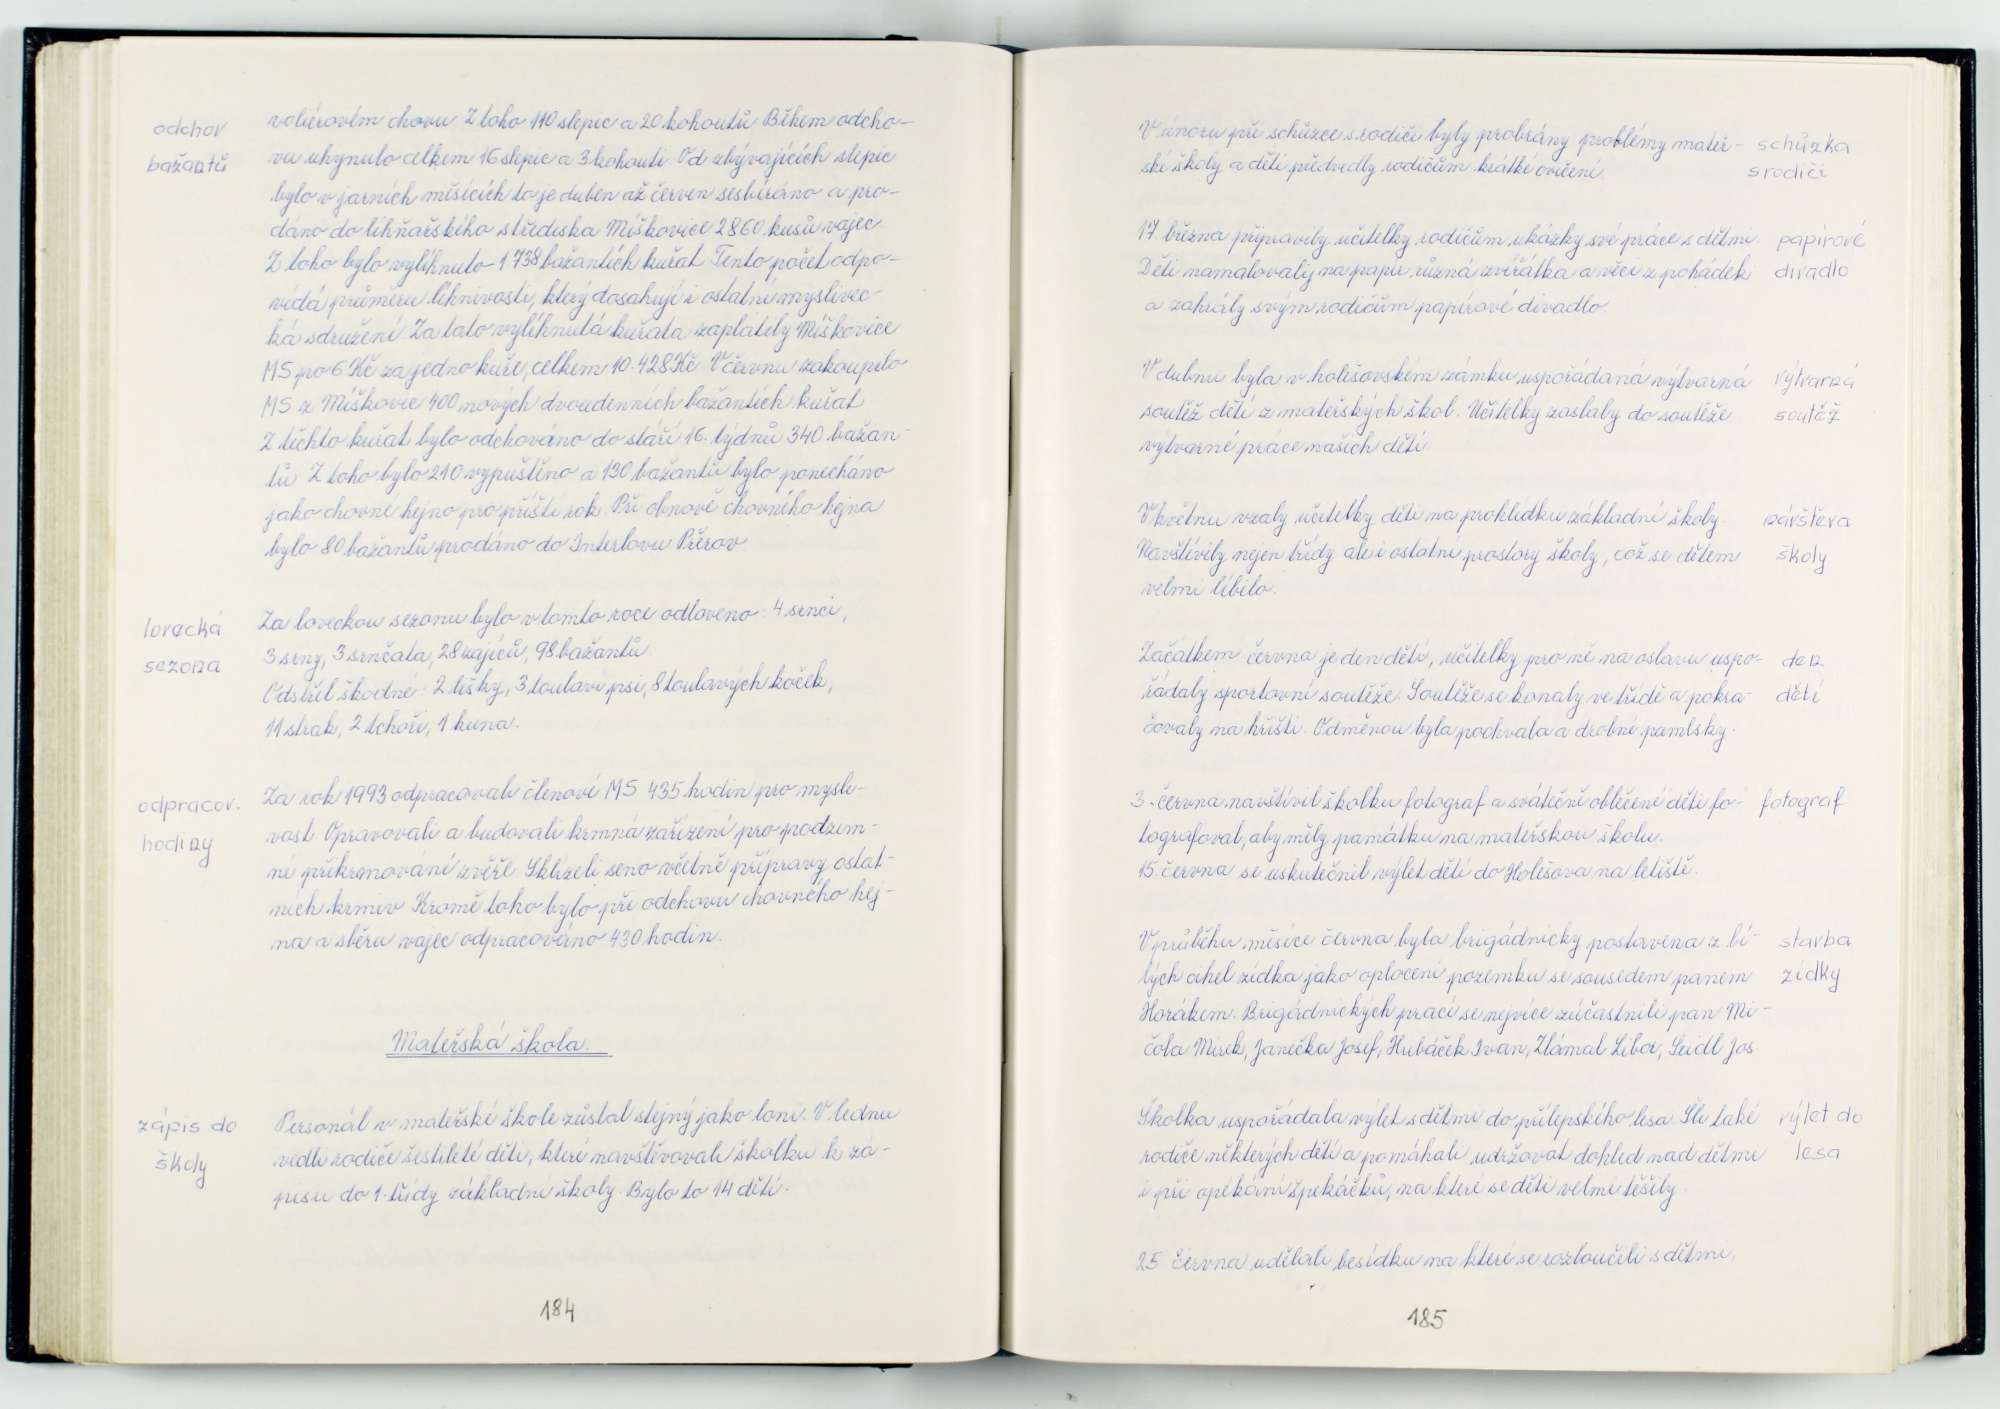 odchov
bažantů
voliérovém chovu Z toho 110 slepic a 20 kohoutů Během odcho-
vu uhynulo celkem 16 slepic a 3 kohouti Od zbývajících slepic
bylo v jarních měsících to je duben až červen sesbíráno a pro-
dáno do líhňařského střediska Míškovice 2860 kusů vajec
Z toho bylo vylíhnuto 1738 bažantích kuřat Tento počet odpo-
vídá průměru líhnivosti, který dosahují i ostatní myslivec-
ká sdružení Za tato vylíhnutá kuřata zaplatily Míškovice
MS pro 6 Kč za jedno kuře, celkem 10.428 Kč V červnu zakoupilo
MS z Míškovic 400 nových dvoudenních bažantích kuřat
Z těchto kuřat bylo odchováno do stáří 16. týdnů 340 bažan-
tů Z toho bylo 210 vypuštěno a 130 bažantů bylo ponecháno
jako chovné hejno pro příští rok Při obnově chovného hejna
bylo 80 bažantů prodáno do Interlovu Přerov
lovecká
sezona
Za loveckou sezonu bylo v tomto roce odloveno: 4 srnci,
3 srny, 3 srnčata, 28 zajíců, 98 bažantů
Odstřel škodné: 2 lišky, 3 toulaví psi, 8 toulavých koček,
11 strak, 2 tchoři, 1 kuna.
odpracov.
hodiny
Za rok 1993 odpracovali členové MS 435 hodin pro mysli-
vost Opravovali a budovali krmná zařízení pro podzim-
ní přikrmování zvěře Sklízeli seno včetně přípravy ostat-
ních krmiv Kromě toho bylo při odchovu chovného hej-
na a sběru vajec odpracováno 430 hodin.
Mateřská škola.
zápis do
školy
Personál v mateřské škole zůstal stejný jako loni. V lednu
vedli rodiče šestileté děti, které navštěvovali školku k zá-
pisu do 1. třídy základní školy. Bylo to 14 dětí.
184
V únoru při schůzce s rodiči byly probrány problémy mateř-
ské školy a děti předvedly rodičům krátké cvičení
schůzka
s rodiči
17. března připravily učitelky rodičům ukázky své práce s dětmi
Děti namalovaly na papír různá zvířátka a věci z pohádek
a zahrály svým rodičům papírové divadlo
papírové
divadlo
V dubnu byla v holešovském zámku uspořádaná výtvarná
soutěž dětí z mateřských škol. Učitelky zaslaly do soutěže
výtvarné práce našich dětí
výtvarná
soutěž
V květnu vzaly učitelky děti na prohlídku základní školy.
Navštívily nejen třídy ale i ostatní prostory školy, což se dětem
velmi líbilo.
návštěva
školy
Začátkem června je den dětí, učitelky pro ně na oslavu uspo-
řádaly sportovní soutěže. Soutěže se konaly ve třídě a pokra-
čovaly na hřišti. Odměnou byla pochvala a drobné pamlsky.
den
dětí
3. června navštívil školku fotograf a svátečně oblečené děti fo-
tografoval, aby měly památku na mateřskou školu.
15. června se uskutečnil výlet dětí do Holešova na letiště.
fotograf
V průběhu měsíce června byla brigádnicky postavena z bí-
lých cihel zídka jako oplocení pozemku se sousedem panem
Horákem. Brigádnických prací se nejvíce zúčastnili pan Mi-
čola Mirek, Janečka Josef, Hubáček Ivan, Zlámal Libor, Seidl Jos.
stavba
zídky
Školka uspořádala výlet s dětmi do přílepského lesa Šli také
rodiče některých dětí a pomáhali udržovat dohled nad dětmi
i při opékání špekáčků, na které se děti velmi těšily.
výlet do
lesa
25 června udělali besídku na které se rozloučili s dětmi,
185